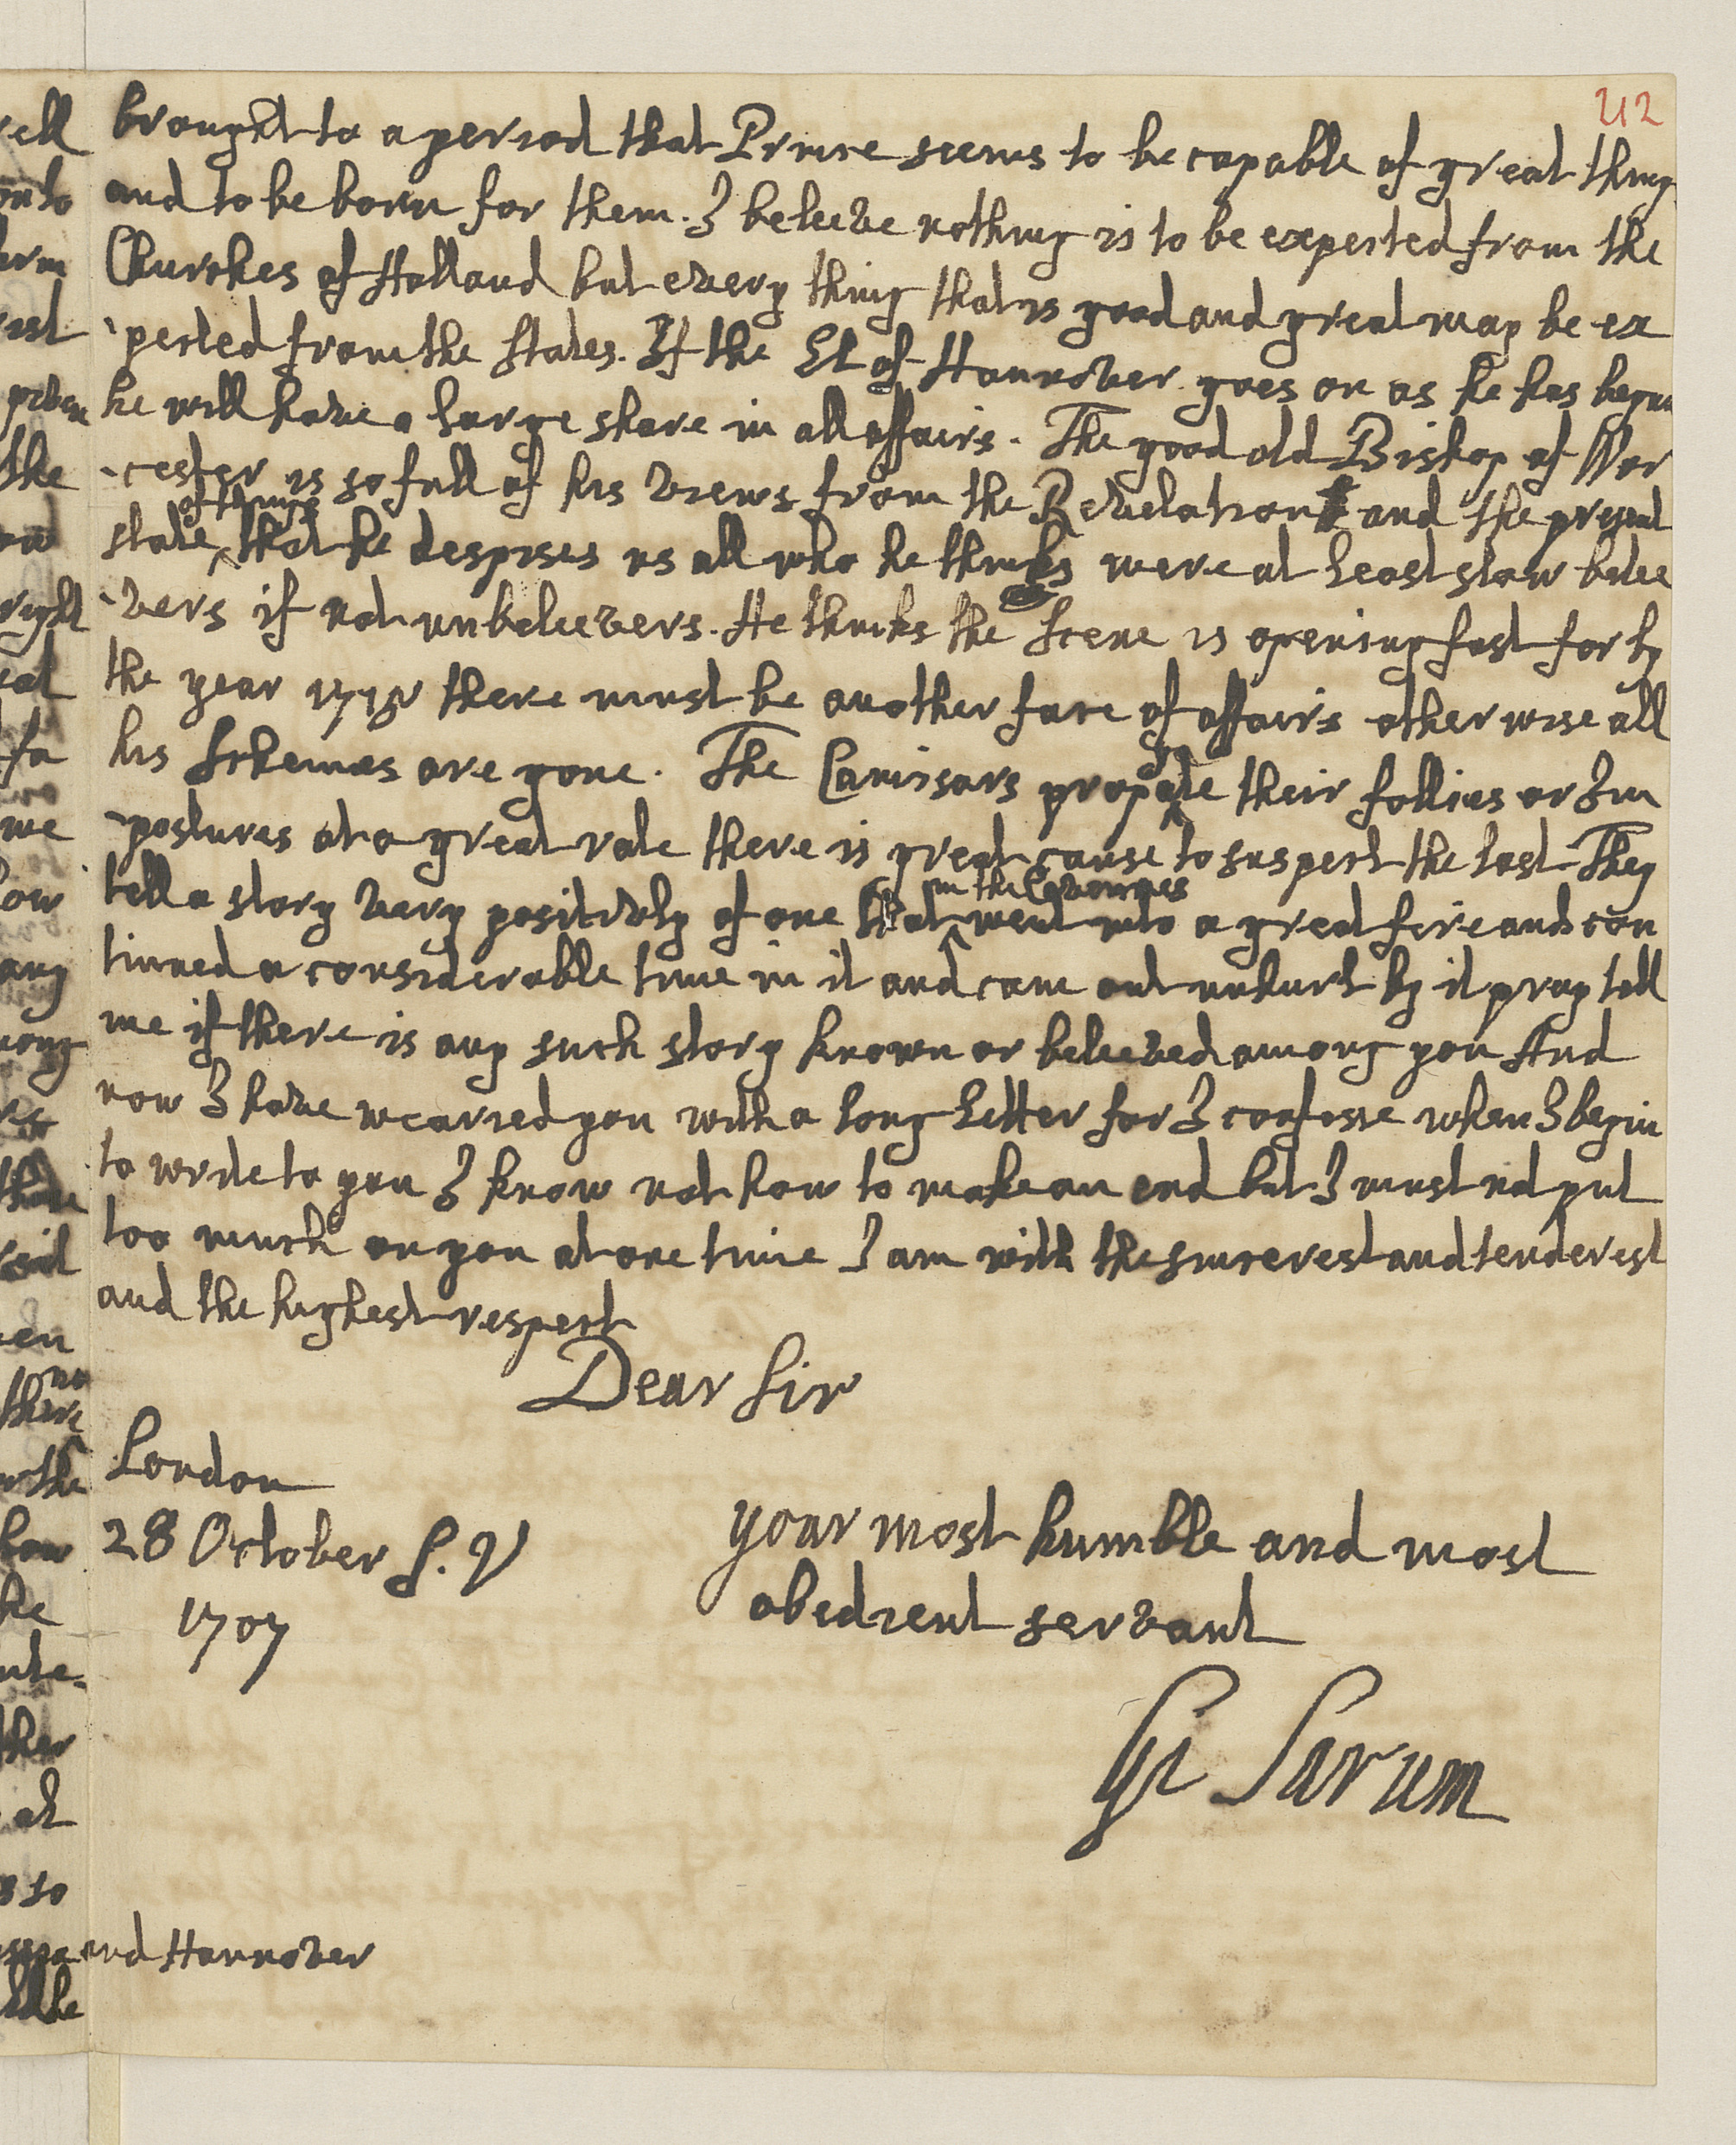 212
brought to a period that Prince seems to be capable of great things
and to be born for them. I beleeve nothing is to be expected from the
Churches of Holland but every thing that is good and great may be ex
-pected from the States. If the El of Hannover goes on as he has begun
he will have a large share in all affairs. The good old Bishop of Wor
-cester is so full of his views from the Revelation and the present
of things
state that he despises us all who he thinks were at least slow belee
-vers if not unbeleevers. He thinks the Scene is opening fast for by
the year 1716 there must be another face of affairs otherwise all
his Schemes are gone. The Camisars propagate their follies or Im
-postures at a great rate there is great cause to suspect the last They
in the Cevennes
tell a story very positively of one that went into a great fire and con
tinued a considerable time in it and came out unhurt by it pray tell
me if there is any such story known or beleeved among you And
now I have wearied you with a long Letter for I confesse when I begin
to write to you I know not how to make an end but I must not put
too much on you at one time I am with the sincerest and tenderest
and the highest respect
Dear Sir
London
28 October S. V
1707
your most humble and most
obedient servant
Gi Sarum
and Hannover